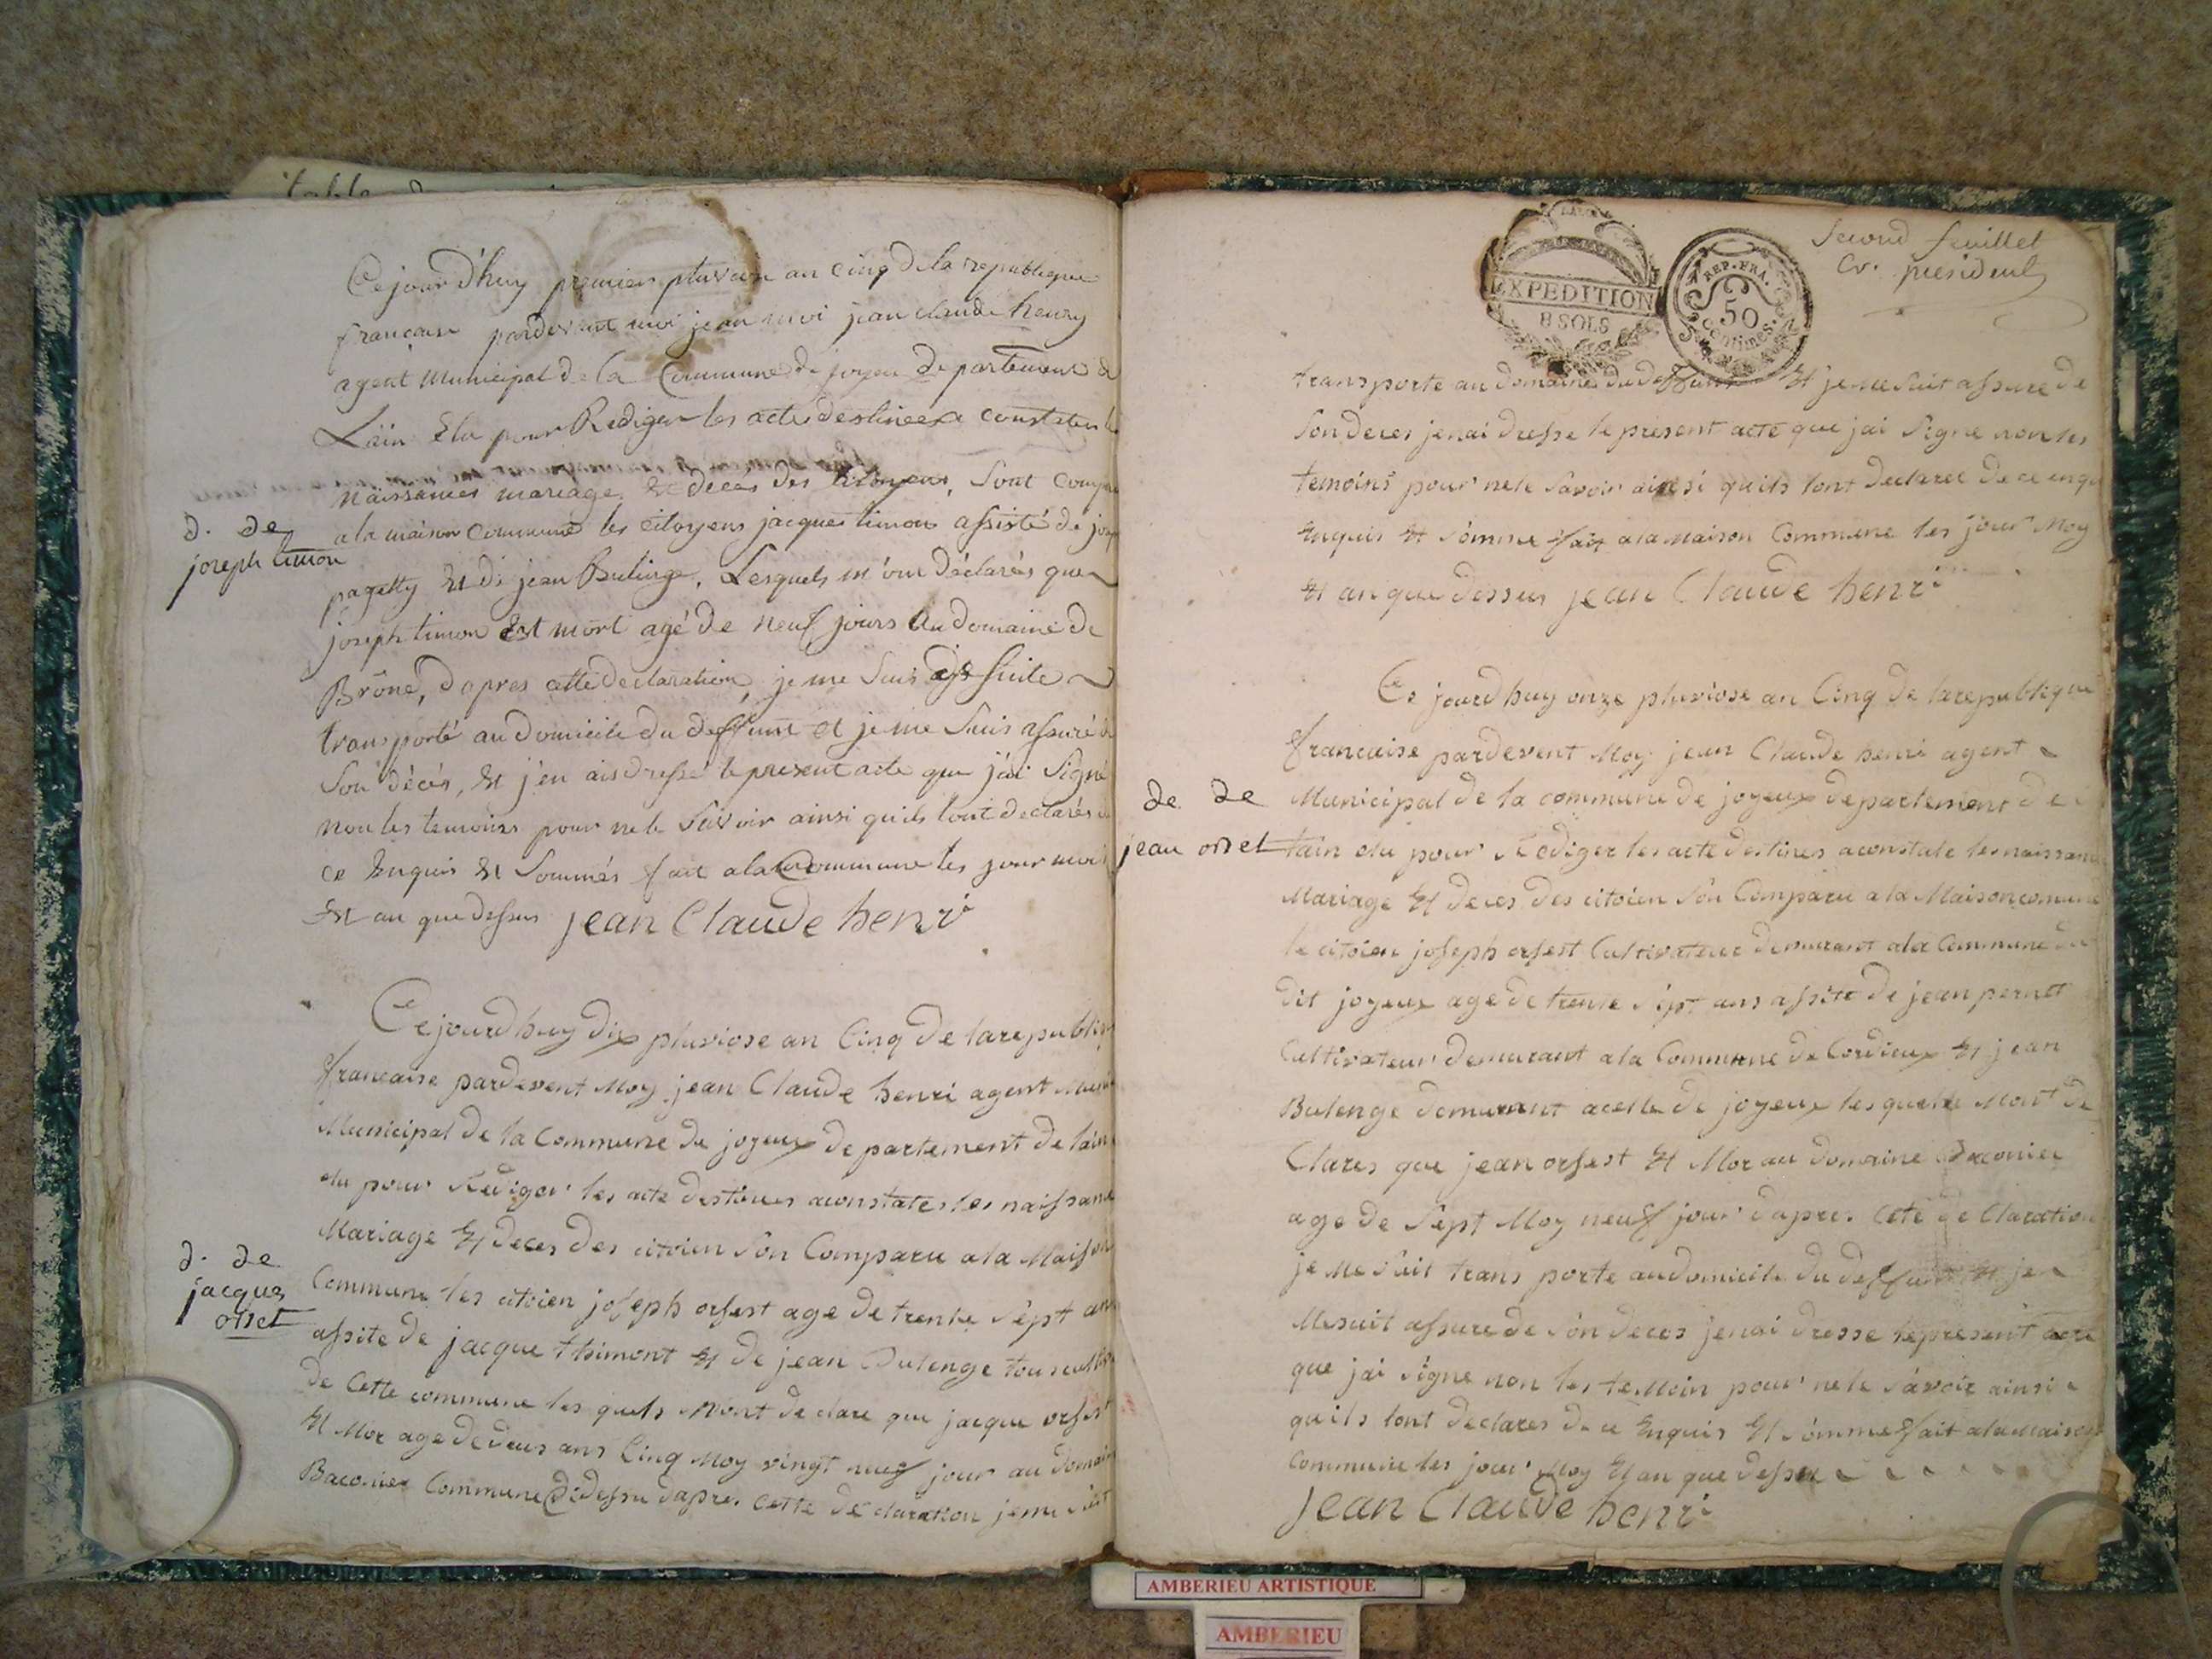 table
Ce jourd'huy premier pluviose an cinq de la republique
francaise pardevant moi jean moi jean claude henry
agent municipal de la Commune de joyeu departement de
Lain Elu pour Rediger les actes destinees a constater les
Naissances mariage et décés des citoyens, sont compa
a la maison commune les citoyens jacques timon assisté de jo
pagetty et de jean Bulinge, Lesquels m'ont déclarés que
joseph timon Est mort agé de neuf jours Au domaine de
Brône, dapres cette declaration, je me suis de suite
transporté au domicile du deffunt et je me suis assuré de
son décés, et j'en ais dressé le present acte que j'ai signé
non les temoins pour ne le savoir ainsi quils lont declarés de
ce Enquis et sommés fait a la Commune les jour mois
Et an que dessus jean Claude henri
d. de
joseph timon
Ce jourdhuy dix pluviose an Cinq de la republiq
francaise pardevent Moy jean Claude henri agent Muni
Municipal de la Commune de joyeux departement de lain
elu pour Rediger les acte destinees aconstates les naissance
Mariage et deces des citoien son Comparu a la Maison
Commune les citoien joseph orsest age de trente sept ans
assite de jacque thimont et de jean Bulenge tous culti
de Cette commune les quels Mont declare que jacque orsest
et Mor age de deus ans Cinq Moy vingt neuf jour au domain
Baconier Commune dedessu dapres Cette declaration je me suit
d. de
jacques
orset
EXPEDITION
8 SOLS
REP. FRA.
50
centimes.
Second feuillet
Cr. president
transporte au domaine du deffunt et je me suit assure de
son deces jenai dresse le present acte que jai signe non les
temoins pour nele savoir ainsi quils lont declarer de ce enqu
Enquis et somme fait a la Maison Commune les jour Moy
et an que dessus jean Claude henri
Ce jourdhuy onze pluviose an Cinq de la republique
francaise pardevent Moy jean Claude henri agent
Municipal de la commune de joyeux departement de
lain elu pour Rediger les acte destines aconstate les naissance
Mariage et deces des citoien son Comparu a la Maison comune
le citoien joseph orsest Cultivateur demurant a la Commune du
dit joyeux age de trente sept ans assite de jean pernet
Cultivateur demurant a la Commune de Cordieux et jean
Bulenge demurant acelle de joyeux les quelle Mont de
Clares que jean orsest et Mor au domaine Baconier
age de sept Moy neuf jour dapres Cete de Claration
je me suit trans porte au domicile du deffunt et je
Mesuit assure de son deces jenai dresse le present acte
que jai signe non les temoin pour nele savoir ainsi
quils lont declares de ce Enquis et somme fait a la maison
Commune les jour Moy et an que dessu
Jean Claude henri
de de
jean orset
AMBERIEU ARTISTIQUE
AMBERIEU